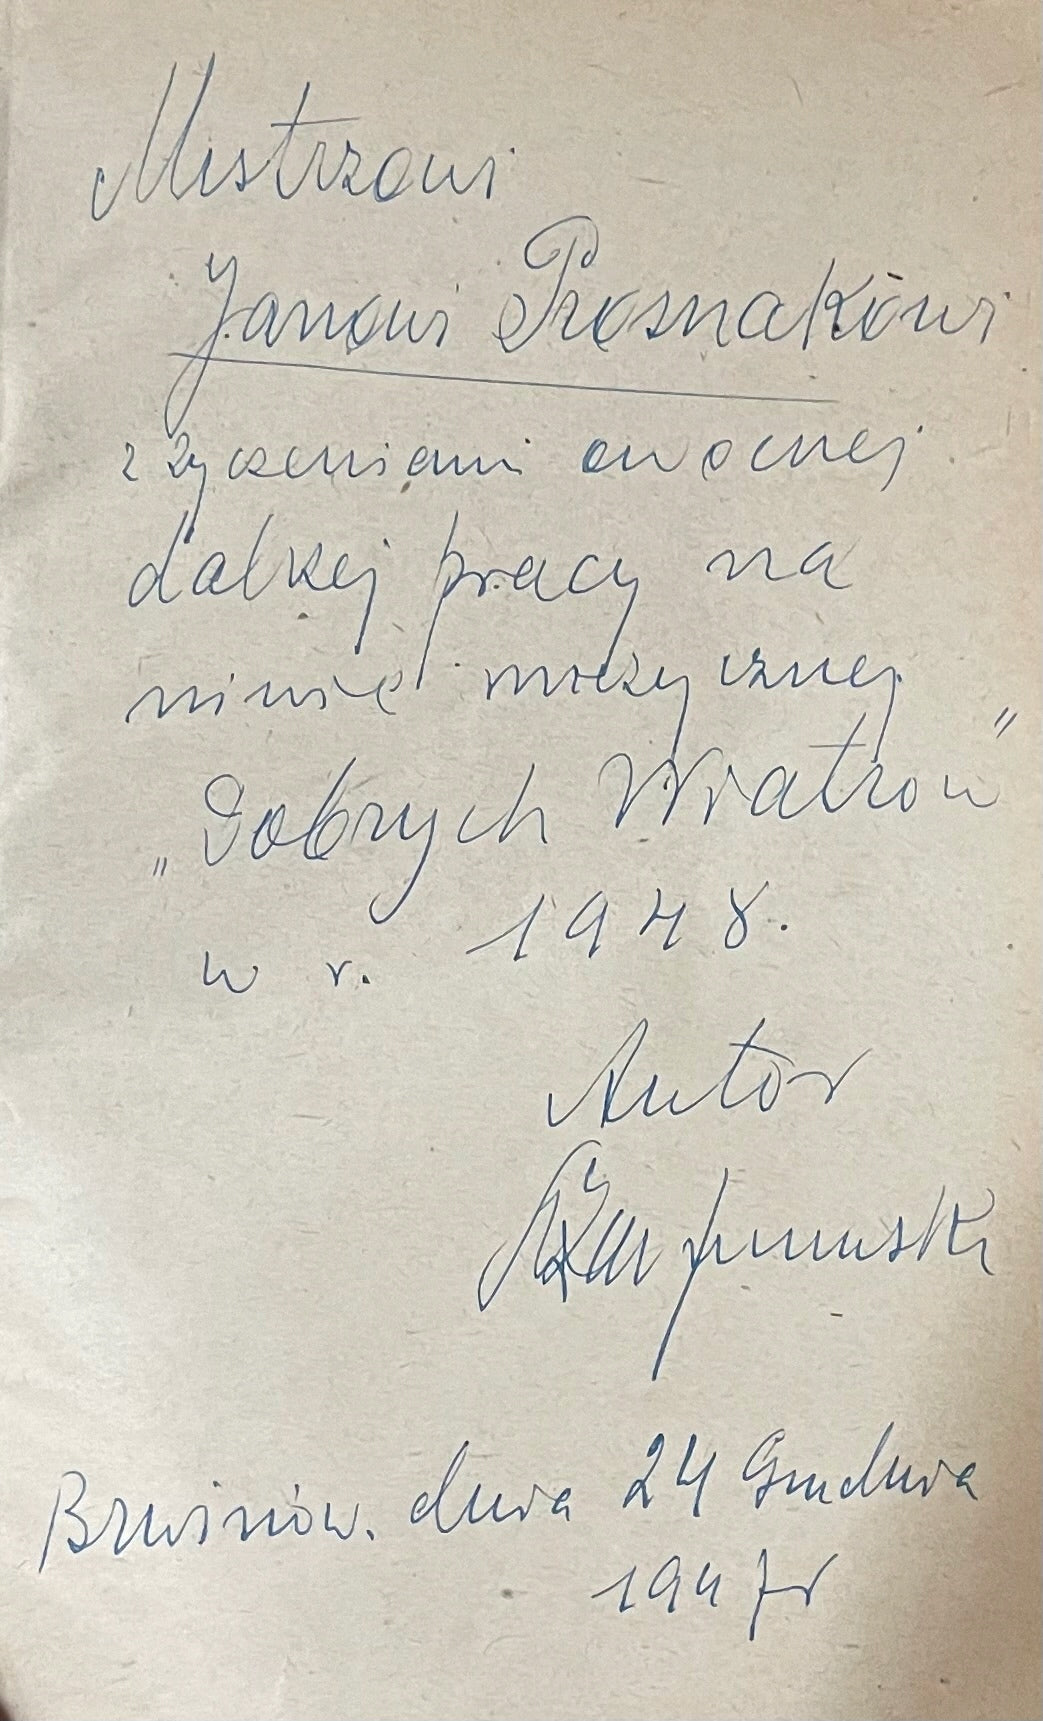 Mistrzowi
Janowi Prosnakowi
z życzeniami owocnej
dalszej pracy na
niwie muzycznej
„Dobrych Wiatrów”
w r. 1948.
Autor
Brwinów. dnia 24 Grudnia
1947 r